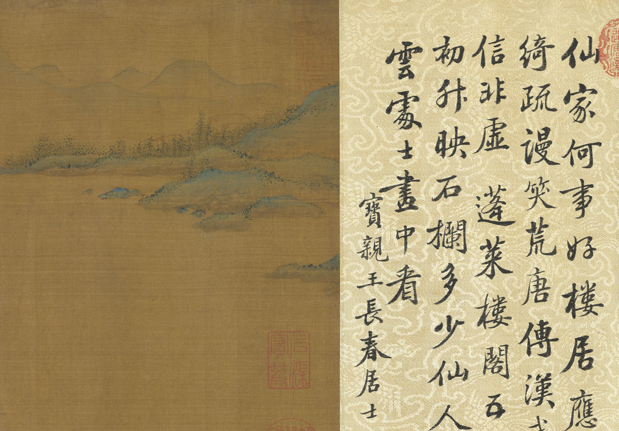 仙家何事好樓居應
綺疏謾笑荒唐傳漢
信非虛 蓬萊樓閣五
初升映石欄多少仙人
雲處士畫中看
寶親王長春居士